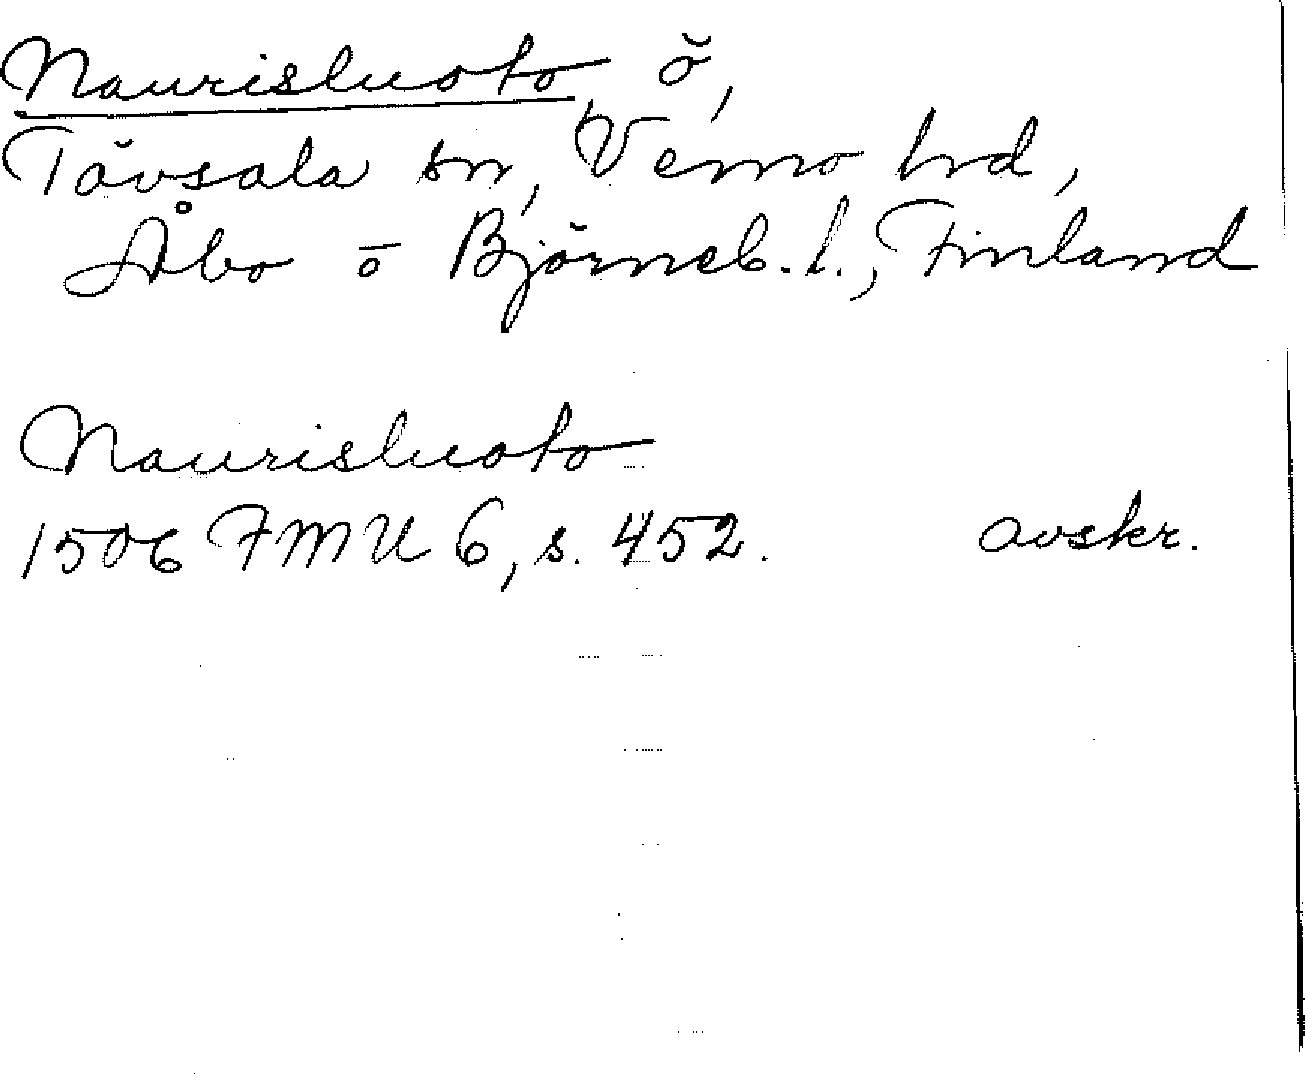 Naurisluoto ö,
Tövsala sn, Vemo hd,
Åbo o Björneb. l., Finland
Naurisluoto
1506 FMU 6, s. 452. avskr.